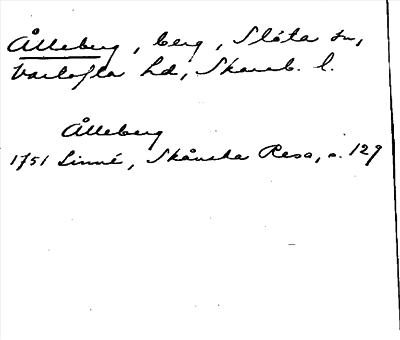 Ålleberg, berg, Slöta sn,
Vartofta hd, Skarab. l.
Ålleberg
1751 Linné, Skånska Resa, s. 129